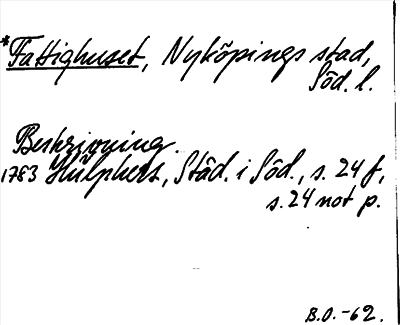 *Fattighuset, Nyköpings stad,
Söd. l.
Beskrivning.
1783 Hülphers, Städ. i Söd., s. 24 f,
s. 24 not p.
B.O.-62.